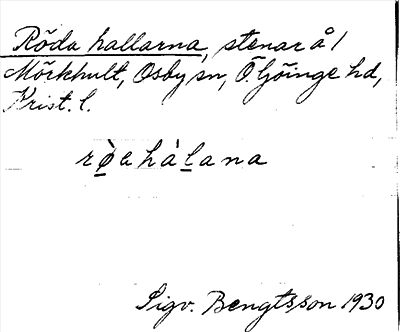 Röda hallarna, stenar å/
Mörkhult, Osby sn, Ö Göinge hd,
Krist. l.
rø̀a hàlana
Sigv. Bengtsson 1930